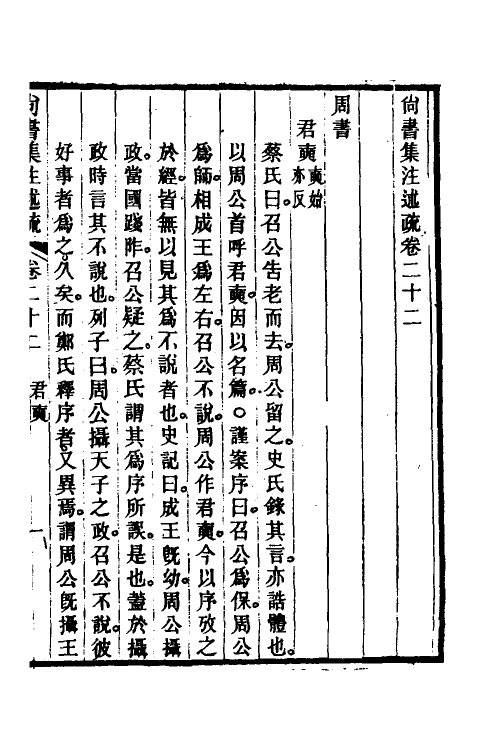 尙書集注述疏卷二十二
周書
君奭奭始亦反
蔡氏曰。召公告老而去。周公留之。史氏錄其言。亦誥體也。
以周公首呼君奭。因以名篇。○謹案序曰。召公爲保。周公
爲師。相成王爲左右。召公不說。周公作君奭。今以序攷之
於經。皆無以見其爲不說者也。史記曰。成王旣幼。周公攝
政。當國踐阼。召公疑之。蔡氏謂其爲序所誤。是也。蓋於攝
政時言其不說也。列子曰。周公攝天子之政。召公不說。彼
好事者爲之。久矣。而鄭氏釋序者。又異焉。謂周公旣攝王
尙書集注述疏 卷二十二 君奭 一